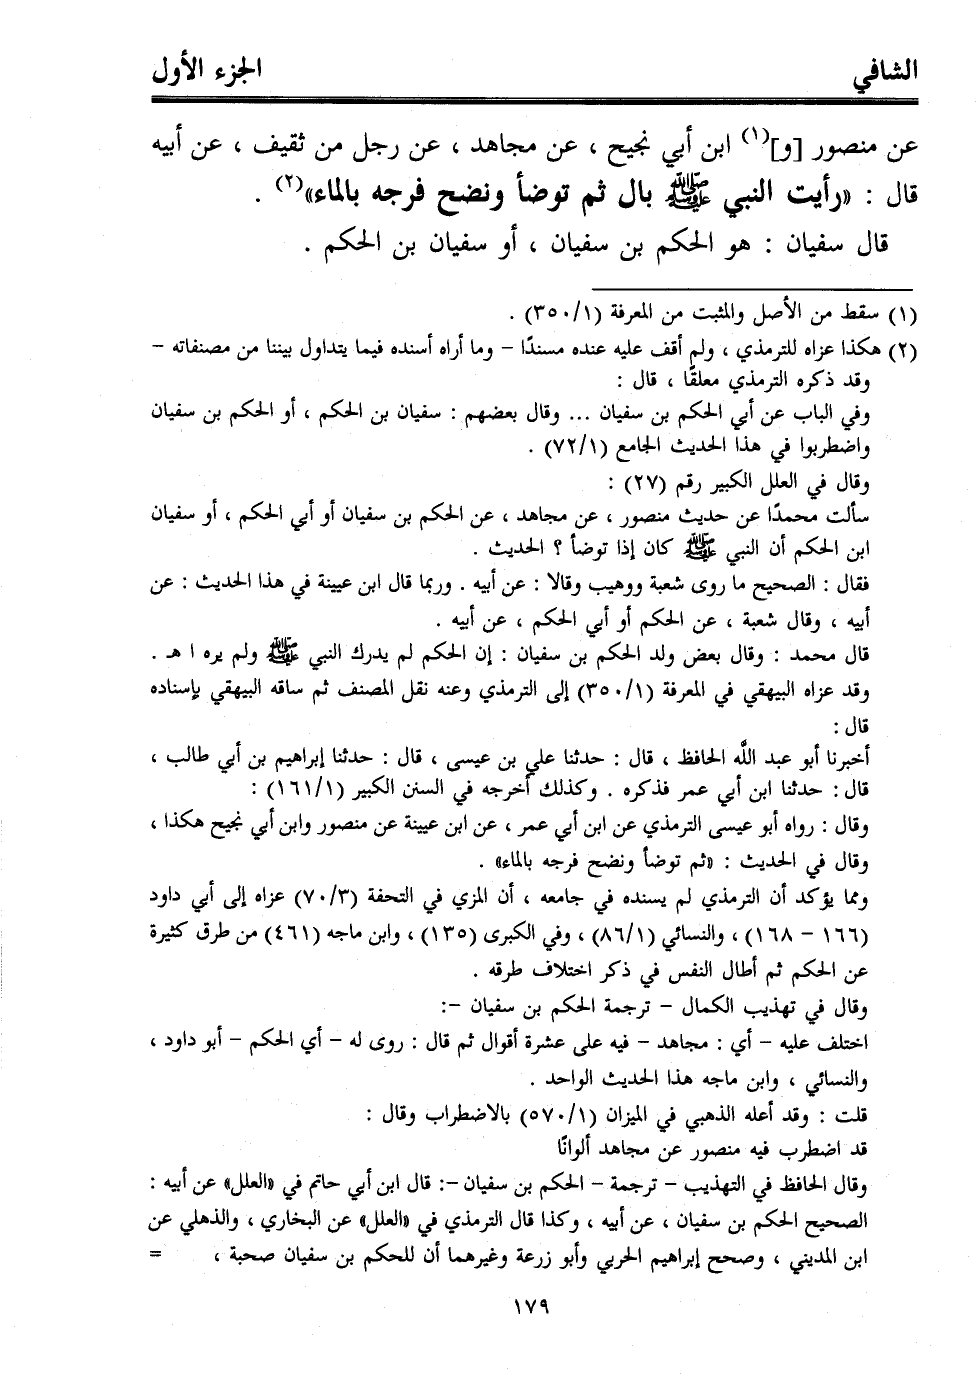 الشافي الجزء الأول
عن منصور [و](١) ابن أبي نجيح ، عن مجاهد ، عن رجل من ثقيف ، عن أبيه
قال : «رأيت النبي ﷺ بال ثم توضأ ونضح فرجه بالماء»(٢) .
قال سفيان : هو الحكم بن سفيان ، أو سفيان بن الحكم .
(١) سقط من الأصل والمثبت من المعرفة (٣٥٠/١) .
(٢) هكذا عزاه للترمذي ، ولم أقف عليه عنده مسندًا – وما أراه أسنده فيما يتداول بيننا من مصنفاته –
وقد ذكره الترمذي معلقًا ، قال :
وفي الباب عن أبي الحكم بن سفيان ... وقال بعضهم : سفيان بن الحكم ، أو الحكم بن سفيان
واضطربوا في هذا الحديث الجامع (٧٢/١) .
وقال في العلل الكبير رقم (٢٧) :
سألت محمدًا عن حديث منصور ، عن مجاهد ، عن الحكم بن سفيان أو أبي الحكم ، أو سفيان
ابن الحكم أن النبي ﷺ كان إذا توضأ ؟ الحديث .
فقال : الصحيح ما روى شعبة ووهيب وقالا : عن أبيه . وربما قال ابن عيينة في هذا الحديث : عن
أبيه ، وقال شعبة ، عن الحكم أو أبي الحكم ، عن أبيه .
قال محمد : وقال بعض ولد الحكم بن سفيان : إن الحكم لم يدرك النبي ﷺ ولم يره ا هـ .
وقد عزاه البيهقي في المعرفة (٣٥٠/١) إلى الترمذي وعنه نقل المصنف ثم ساقه البيهقي بإسناده
قال :
أخبرنا أبو عبد اللَّه الحافظ ، قال : حدثنا علي بن عيسى ، قال : حدثنا إبراهيم بن أبي طالب ،
قال : حدثنا ابن أبي عمر فذكره . وكذلك أخرجه في السنن الكبير (١٦١/١) :
وقال : رواه أبو عيسى الترمذي عن ابن أبي عمر ، عن ابن عيينة عن منصور وابن أبي نجيح هكذا ،
وقال في الحديث : «ثم توضأ ونضح فرجه بالماء» .
ومما يؤكد أن الترمذي لم يسنده في جامعه ، أن المزي في التحفة (٧٠/٣) عزاه إلى أبي داود
(١٦٦ – ١٦٨) ، والنسائي (٨٦/١) ، وفي الكبرى (١٣٥) ، وابن ماجه (٤٦١) من طرق كثيرة
عن الحكم ثم أطال النفس في ذكر اختلاف طرقه .
وقال في تهذيب الكمال – ترجمة الحكم بن سفيان –:
اختلف عليه – أي : مجاهد – فيه على عشرة أقوال ثم قال : روى له – أي الحكم – أبو داود ،
والنسائي ، وابن ماجه هذا الحديث الواحد .
قلت : وقد أعله الذهبي في الميزان (٥٧٠/١) بالاضطراب وقال :
قد اضطرب فيه منصور عن مجاهد ألوانًا
وقال الحافظ في التهذيب – ترجمة – الحكم بن سفيان –: قال ابن أبي حاتم في «العلل» عن أبيه :
الصحيح الحكم بن سفيان ، عن أبيه ، وكذا قال الترمذي في «العلل» عن البخاري ، والذهلي عن
ابن المديني ، وصحح إبراهيم الحربي وأبو زرعة وغيرهما أن للحكم بن سفيان صحبة ، =
١٧٩